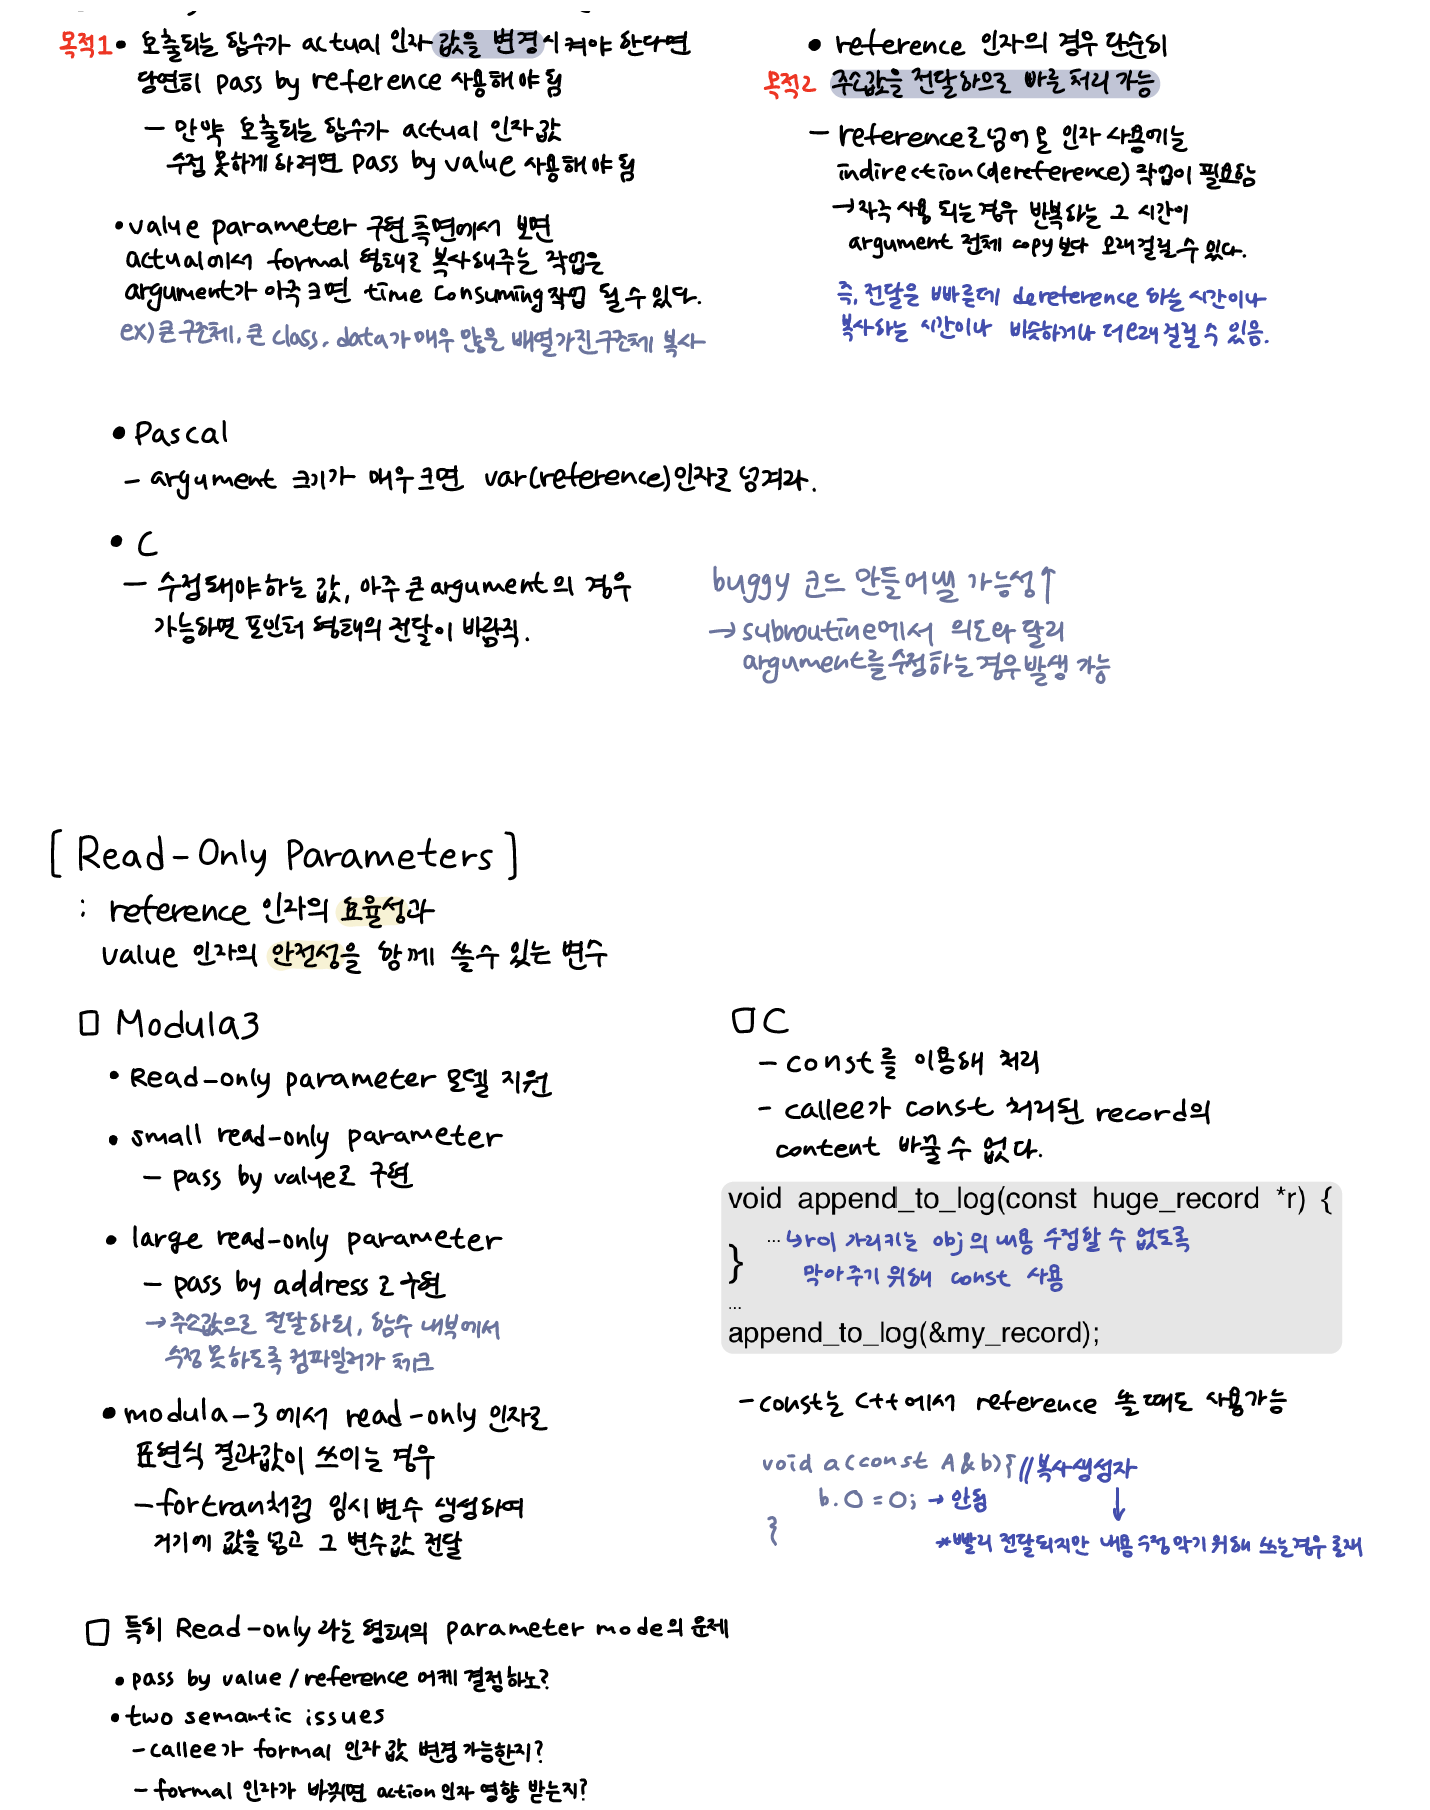 목적1 • 호출되는 함수가 actual 인자 값을 변경시켜야 한다면
당연히 pass by reference 사용해야 됨
- 만약 호출되는 함수가 actual 인자 값
수정 못하게 하려면 pass by value 사용해야 됨
• value parameter 구현 측면에서 보면
actual에서 formal 형태로 복사해주는 작업은
argument가 아주 크면 time consuming 작업 될 수 있다.
ex) 큰 구조체, 큰 class, data가 매우 많은 배열가진 구조체 복사
• reference 인자의 경우 단순히
목적2 주소값을 전달하므로 빠른 처리 가능
- reference로 넘어온 인자 사용에는
indirection(dereference) 작업이 필요함
→ 자주 사용 되는 경우 반복하는 그 시간이
argument 전체 copy 보다 오래걸릴 수 있다.
즉, 전달은 빠른데 dereference 하는 시간이나
복사하는 시간이나 비슷하거나 더 오래 걸릴 수 있음.
• Pascal
- argument 크기가 매우 크면 var(reference)인자로 넘겨라.
• C
- 수정돼야하는 값, 아주 큰 argument의 경우
가능하면 포인터 형태의 전달이 바람직.
buggy 코드 만들어낼 가능성↑
→ subroutine에서 의도와 달리
argument를 수정하는 경우 발생 가능
[ Read-Only Parameters ]
: reference 인자의 효율성과
value 인자의 안전성을 함께 쓸 수 있는 변수
□ Modula3
• Read-only parameter 모델 지원
• small read-only parameter
- pass by value로 구현
• large read-only parameter
- pass by address로 구현
→ 주소값으로 전달하되, 함수 내부에서
수정 못하도록 컴파일러가 체크
• modula-3에서 read-only 인자로
표현식 결과값이 쓰이는 경우
- fortran처럼 임시 변수 생성하여
거기에 값을 넣고 그 변수값 전달
□ C
- const를 이용해 처리
- callee가 const 처리된 record의
content 바꿀 수 없다.
void append_to_log(const huge_record *r) {
... ↳ r이 가리키는 obj의 내용 수정할 수 없도록
} 막아주기 위해 const 사용
...
append_to_log(&my_record);
- const는 C++에서 reference 쓸 때도 사용가능
void a(const A&b){ //복사생성자
b.0=0; → 안됨 ↓
} *빨리 전달되지만 내용 수정 막기 위해 쓰는경우 존재
□ 특히 Read-only라는 형태의 parameter mode의 문제
• pass by value / reference 어케 결정하노?
• two semantic issues
- callee가 formal 인자 값 변경 가능한지?
- formal 인자가 바뀌면 action인자 영향 받는지?